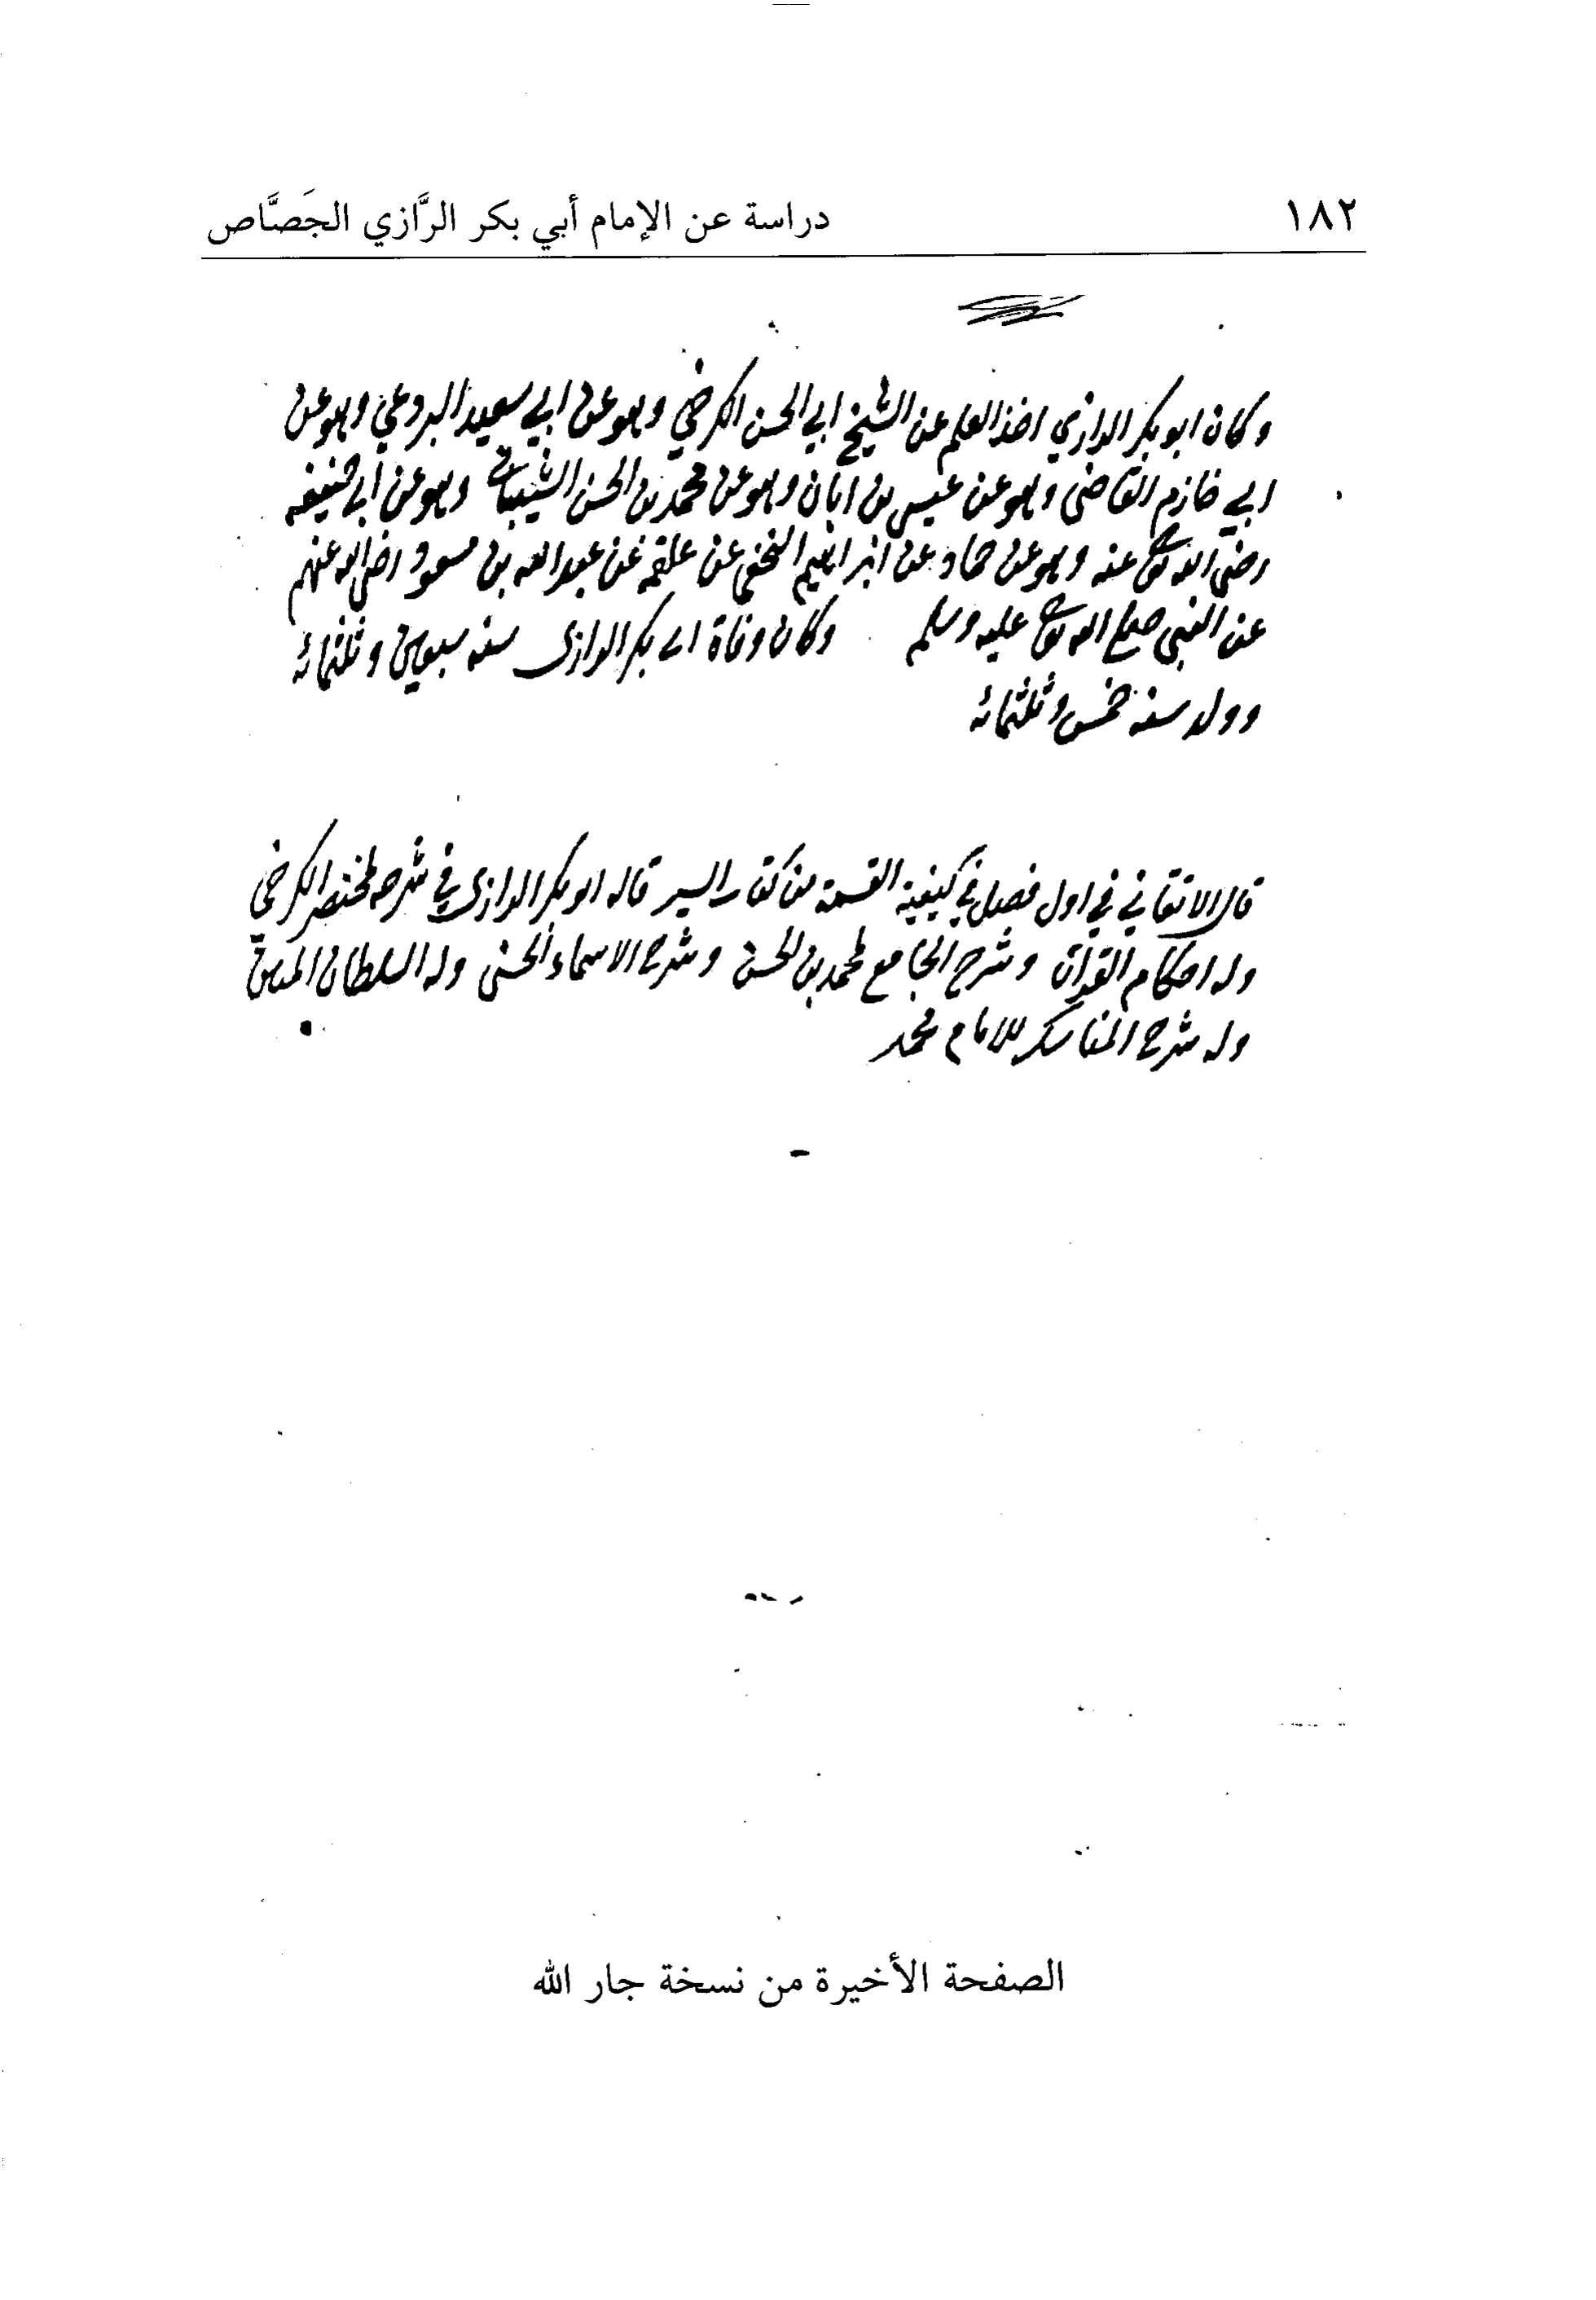 ١٨٢
دراسة عن الإمام أبي بكر الرَّازي الجَصَّاص
وكان ابو بكر الرازي اخذ العلم عن الشيخ ابي الحسن الكرخي وهو عن ابي سعيد البردعي وهو عن
ابي خازم القاضى وهو عن عيسى بن ابان وهو عن محمد بن الحسن الشيباني وهو عن ابي حنيفه
رضى الله تعالى عنه وهو عن حماد عن ابراهيم النخعي عن علقمه عن عبد الله بن مسعود رضى الله عنهم
عن النبي صلى الله تعالى عليه وسلم وكان وفاة ابى بكر الرازى سنه سبعين وثلثمائة
وولد سنه خمس وثلثمائة
قال الاتقاني في اول فصل في كيفية القسمة من كتاب السير قاله ابو بكر الرازى في شرحه لمختصر الكرخي
وله احكام القرآن وشرح الجامع لمحمد بن الحسن وشرح الاسماء الحسنى وله السلطان
وله شرح المناسك للامام محمد
الصفحة الأخيرة من نسخة جار الله